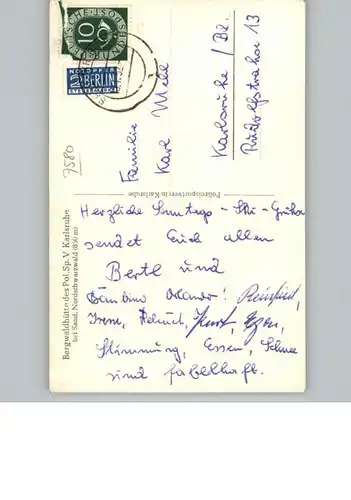 DEUTSCHE BUNDESPOST
10
NOTOPFER
2 BERLIN
STEUERMARKE
Familie
Karl Mehl
Karlsruhe / Bd.
Rudolfstraße 13
9580
Polizeisportverein Karlsruhe
Bergwaldhütte des Pol. Sp. V. Karlsruhe
bei Sand, Nordschwarzwald (850 m)
Herzliche Sonntags - Ski - Grüße
sendet Euch allen
Bertl und
Reinfried,
Irene, Helmut, Kurt,
Stimmung, Essen, Schnee
sind fabelhaft.